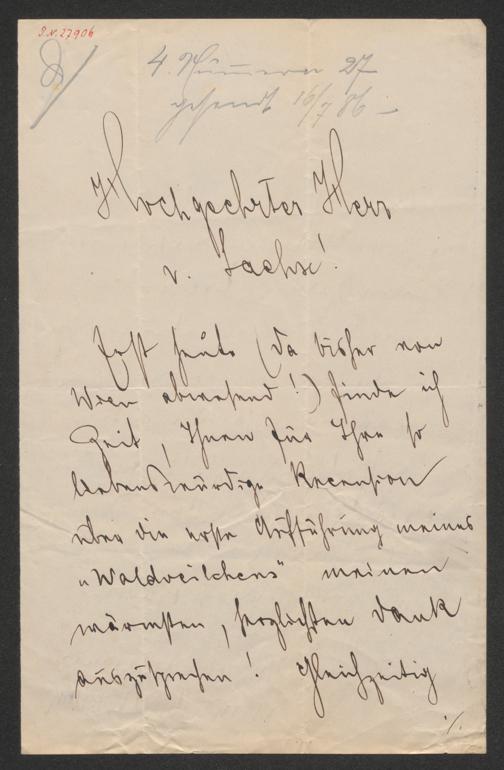 I.N. 27906
4 Nummern 27
gesendt 16/7 86 –
Hochgeehrter Herr
v. Sachse!
Erst heute (da bisher von
Wien abwesend!) finde ich
Zeit, Ihnen für Ihre so
liebenswürdige Recension
über die erste Aufführung meines
„Waldveilchens" meinen
wärmsten, herzlichsten Dank
auszusprechen! Gleichzeitig
./.